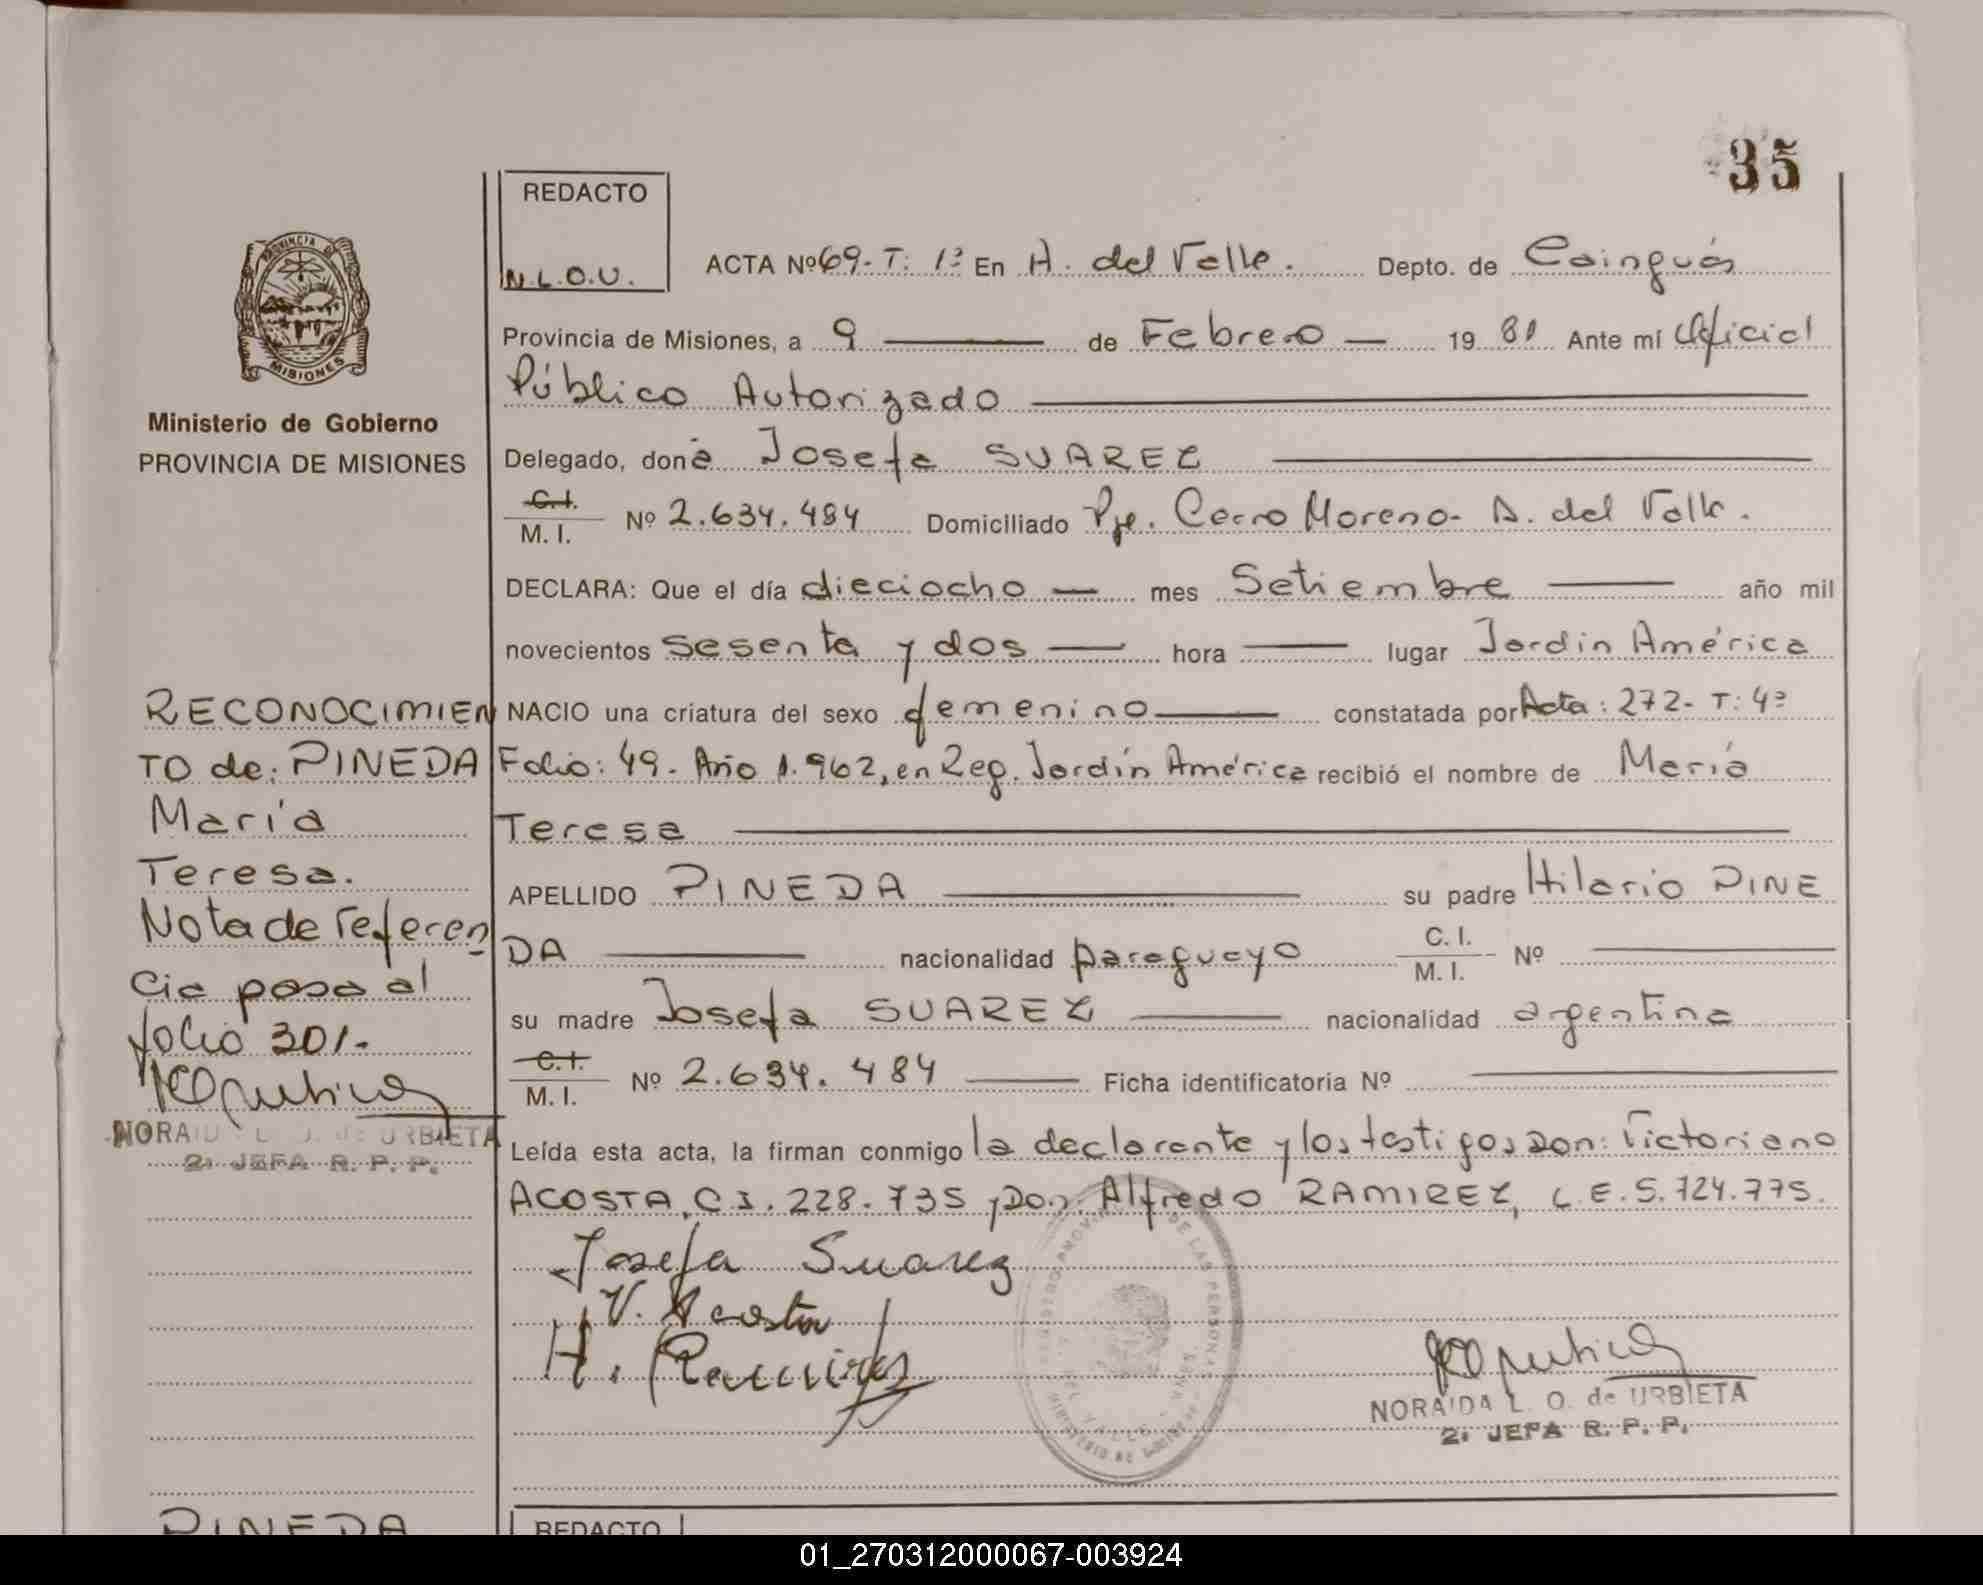 35
REDACTO
N.L.O.U.
ACTA Nº 69. T: 1ª En A. del Valle. Depto. de Cainguás
Provincia de Misiones, a 9 de Febrero 1981 Ante mí Oficial
Público Autorizado
Delegado, doña Josefa SUAREZ
C.I.
M. I. Nº 2.634.484 Domiciliado Pje. Cerro Moreno - A. del Valle.
DECLARA: Que el día dieciocho mes Setiembre año mil
novecientos sesenta y dos hora lugar Jardín América
NACIO una criatura del sexo femenino constatada por Acta: 272- T: 4ª
Folio: 49. Año 1.962, en Reg. Jardín América recibió el nombre de María
Teresa
APELLIDO PINEDA su padre Hilario PINE
DA nacionalidad paraguayo C. I.
M. I. Nº
su madre Josefa SUAREZ nacionalidad argentina
C.I.
M. I. Nº 2.634.484 Ficha identificatoria Nº
Leída esta acta, la firman conmigo la declarante y los testigos Don: Victoriano
ACOSTA, C.I. 228.735 y Don: Alfredo RAMIREZ, L.E. 5.724.775.
Josefa Suarez
V. Acosta
A. Ramirez
NORAIDA L. O. de URBIETA
2ª JEFA R. P. P.
PROVINCIA DE
MISIONES
Ministerio de Gobierno
PROVINCIA DE MISIONES
RECONOCIMIEN
TO de: PINEDA
María
Teresa.
Nota de referen
cia pasa al
folio 301.
NORAIDA L. O. de URBIETA
2ª JEFA R. P. P.
PINEDA
REDACTO
01_270312000067-003924